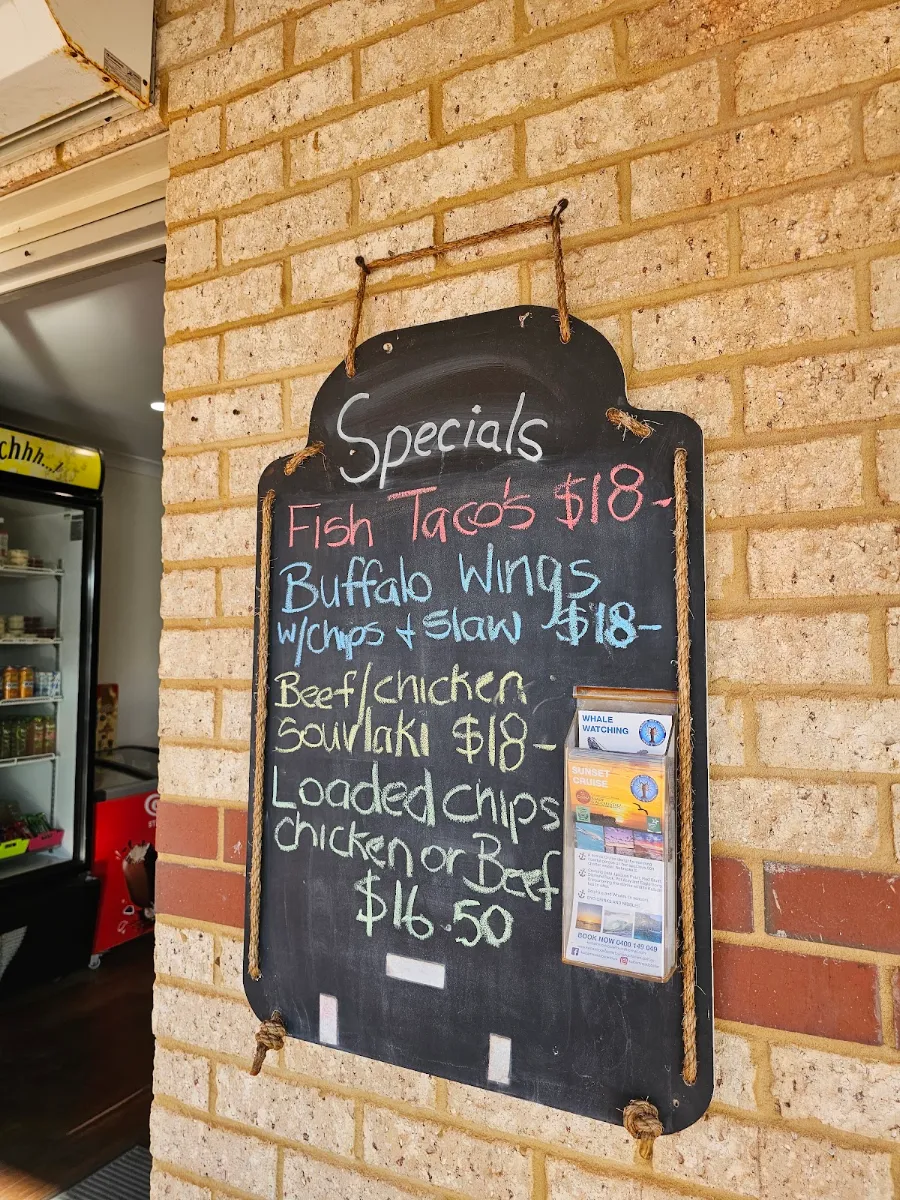 chhh...!
Specials
Fish Taco's $18-
Buffalo Wings
w/chips + Slaw $18-
Beef/chicken
souvlaki $18-
Loaded chips
chicken or Beef
$16.50
WHALE
WATCHING
SUNSET
CRUISE
BOOK NOW 0400 149 049